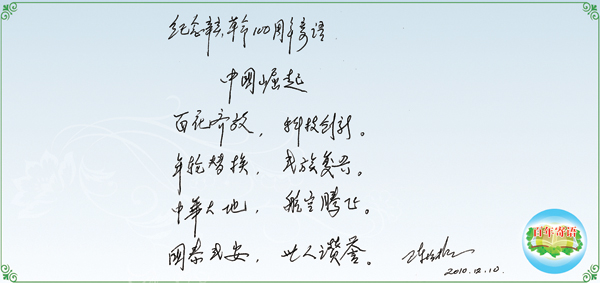 纪念辛亥革命100周年寄语
中國崛起
百花齐放，科技创新。
年轮替换，民族复兴。
中華大地，航空腾飞。
國泰民安，世人讚誉。
2010.12.10.
百年寄语